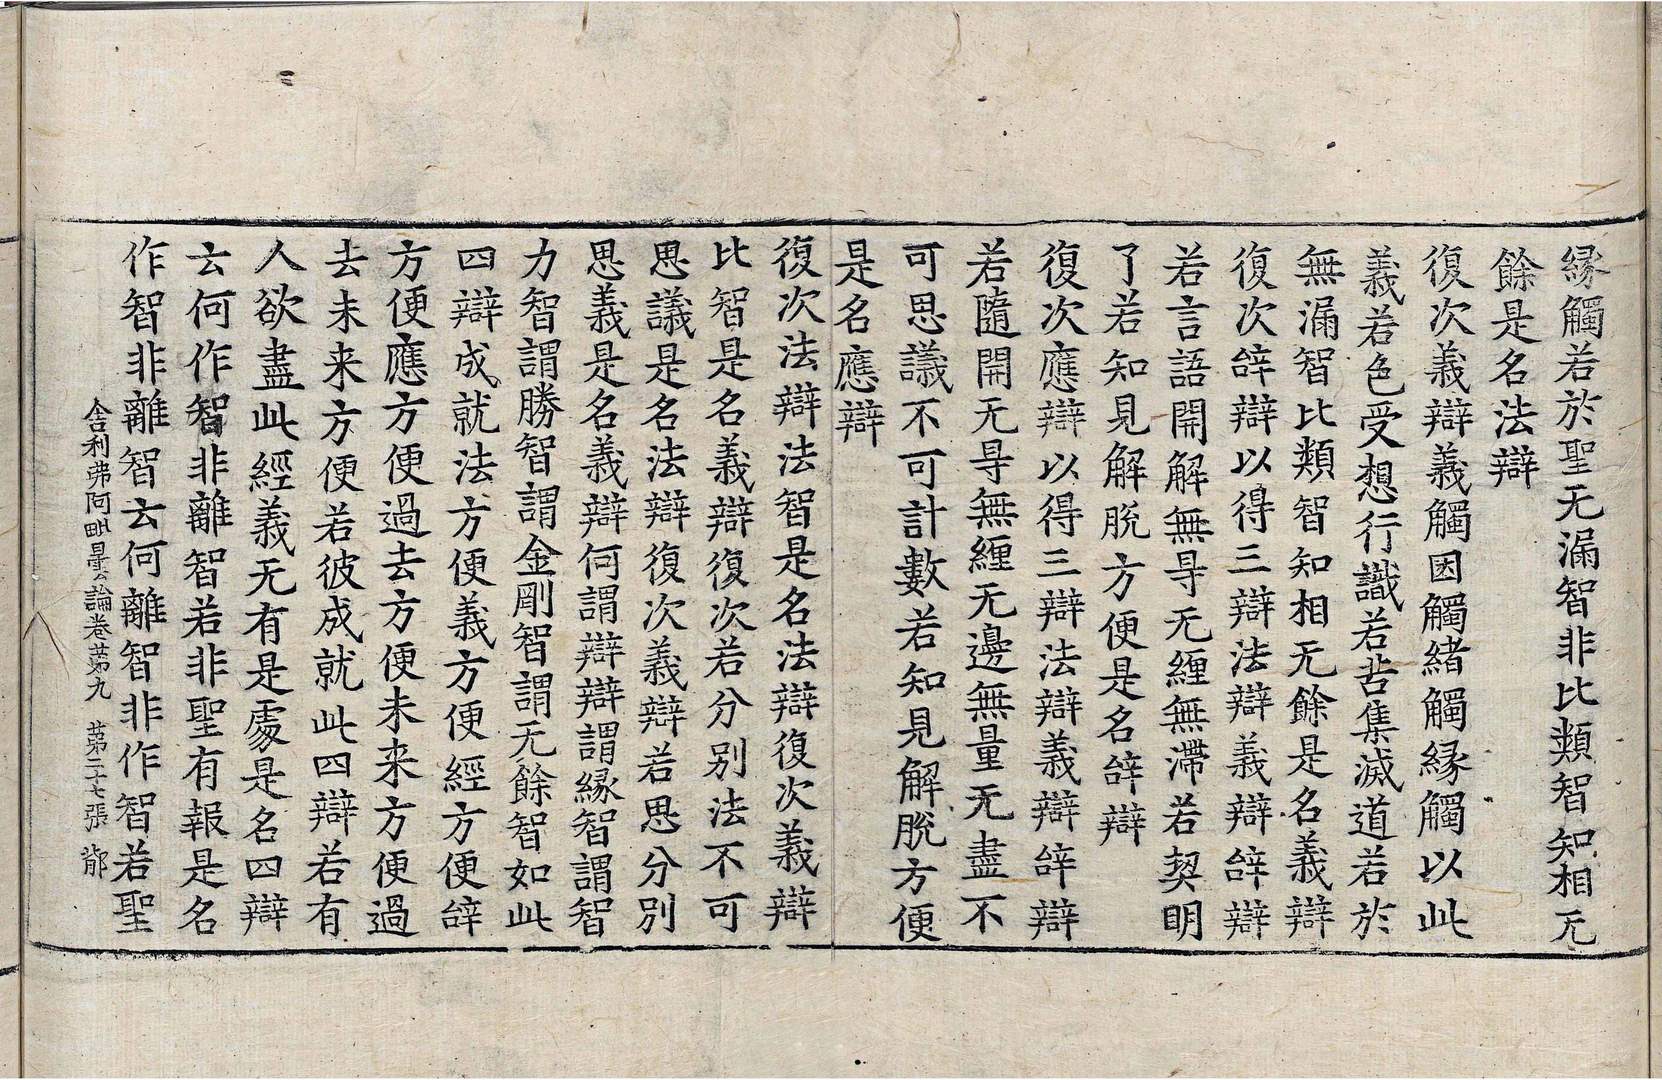 縁觸若於聖无漏智非比類智知相无
餘是名法辯
復次義辯義觸因觸緒觸縁觸以此
義若色受想行識若苦集滅道若於
無漏智比類智知相无餘是名義辯
復次辝辯以得三辯法辯義辯辝辯
若言語開解無㝵无纏無滯若契明
了若知見解脫方便是名辝辯
復次應辯以得三辯法辯義辯辝辯
若隨開无㝵無纏无邊無量无盡不
可思議不可計數若知見解脫方便
是名應辯
復次法辯法智是名法辯復次義辯
比智是名義辯復次若分別法不可
思議是名法辯復次義辯若思分別
思義是名義辯何謂辯辯謂縁智謂智
力智謂勝智謂金剛智謂无餘智如此
四辯成就法方便義方便經方便辝
方便應方便過去方便未来方便過
去未来方便若彼成就此四辯若有
人欲盡此經義无有是處是名四辯
云何作智非離智若非聖有報是名
作智非離智云何離智非作智若聖
舍利弗阿毗曇論卷苐九 苐二十七張